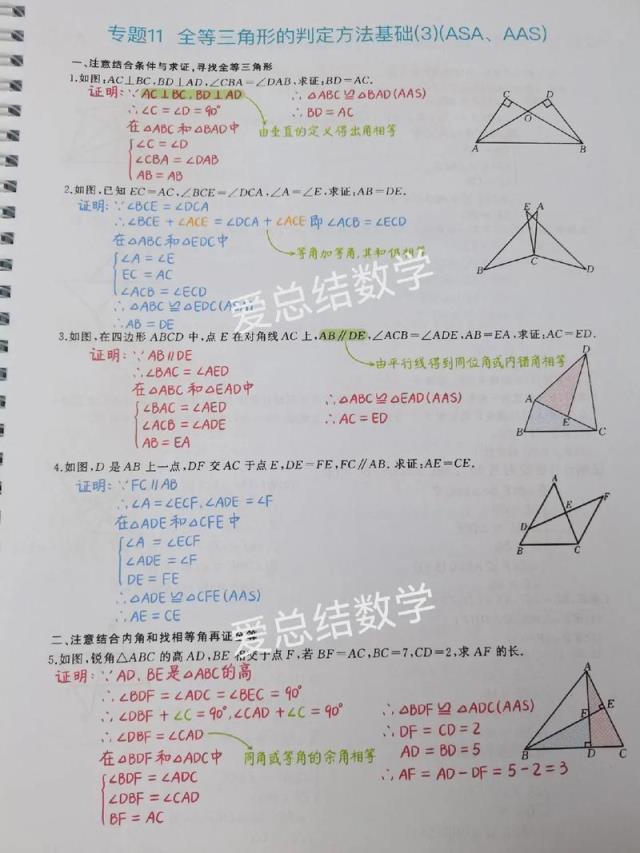 专题11 全等三角形的判定方法基础(3)(ASA、AAS)
一、注意结合条件与求证,寻找全等三角形
1.如图,AC⊥BC,BD⊥AD,∠CBA=∠DAB.求证:BD=AC.
证明:∵AC⊥BC,BD⊥AD
∴∠C=∠D=90°
在△ABC和△BAD中
∠C=∠D
∠CBA=∠DAB
AB=AB
∴△ABC≌△BAD(AAS)
∴BD=AC
由垂直的定义得出角相等
C D
O
A B
2.如图,已知EC=AC,∠BCE=∠DCA,∠A=∠E.求证:AB=DE.
证明:∵∠BCE=∠DCA
∴∠BCE+∠ACE=∠DCA+∠ACE即∠ACB=∠ECD
在△ABC和△EDC中
∠A=∠E
EC=AC
∠ACB=∠ECD
∴△ABC≌△EDC(ASA)
∴AB=DE
等角加等角,其和仍相等
E A
C
B D
爱总结数学
3.如图,在四边形ABCD中,点E在对角线AC上,AB∥DE,∠ACB=∠ADE,AB=EA,求证:AC=ED.
证明:∵AB∥DE
∴∠BAC=∠AED
在△ABC和△EAD中
∠BAC=∠AED
∠ACB=∠ADE
AB=EA
由平行线得到同位角或内错角相等
∴△ABC≌△EAD(AAS)
∴AC=ED
D
A
E
B C
4.如图,D是AB上一点,DF交AC于点E,DE=FE,FC∥AB.求证:AE=CE.
证明:∵FC∥AB
∴∠A=∠ECF,∠ADE=∠F
在△ADE和△CFE中
∠A=∠ECF
∠ADE=∠F
DE=FE
∴△ADE≌△CFE(AAS)
∴AE=CE
A
E F
D
B C
爱总结数学
二、注意结合内角和找相等角再证全等
5.如图,锐角△ABC的高AD,BE相交于点F,若BF=AC,BC=7,CD=2,求AF的长.
证明:∵AD、BE是△ABC的高
∴∠BDF=∠ADC=∠BEC=90°
∴∠DBF+∠C=90°,∠CAD+∠C=90°
∴∠DBF=∠CAD
在△BDF和△ADC中
∠BDF=∠ADC
∠DBF=∠CAD
BF=AC
同角或等角的余角相等
∴△BDF≌△ADC(AAS)
∴DF=CD=2
AD=BD=5
∴AF=AD-DF=5-2=3
A
F E
B D C